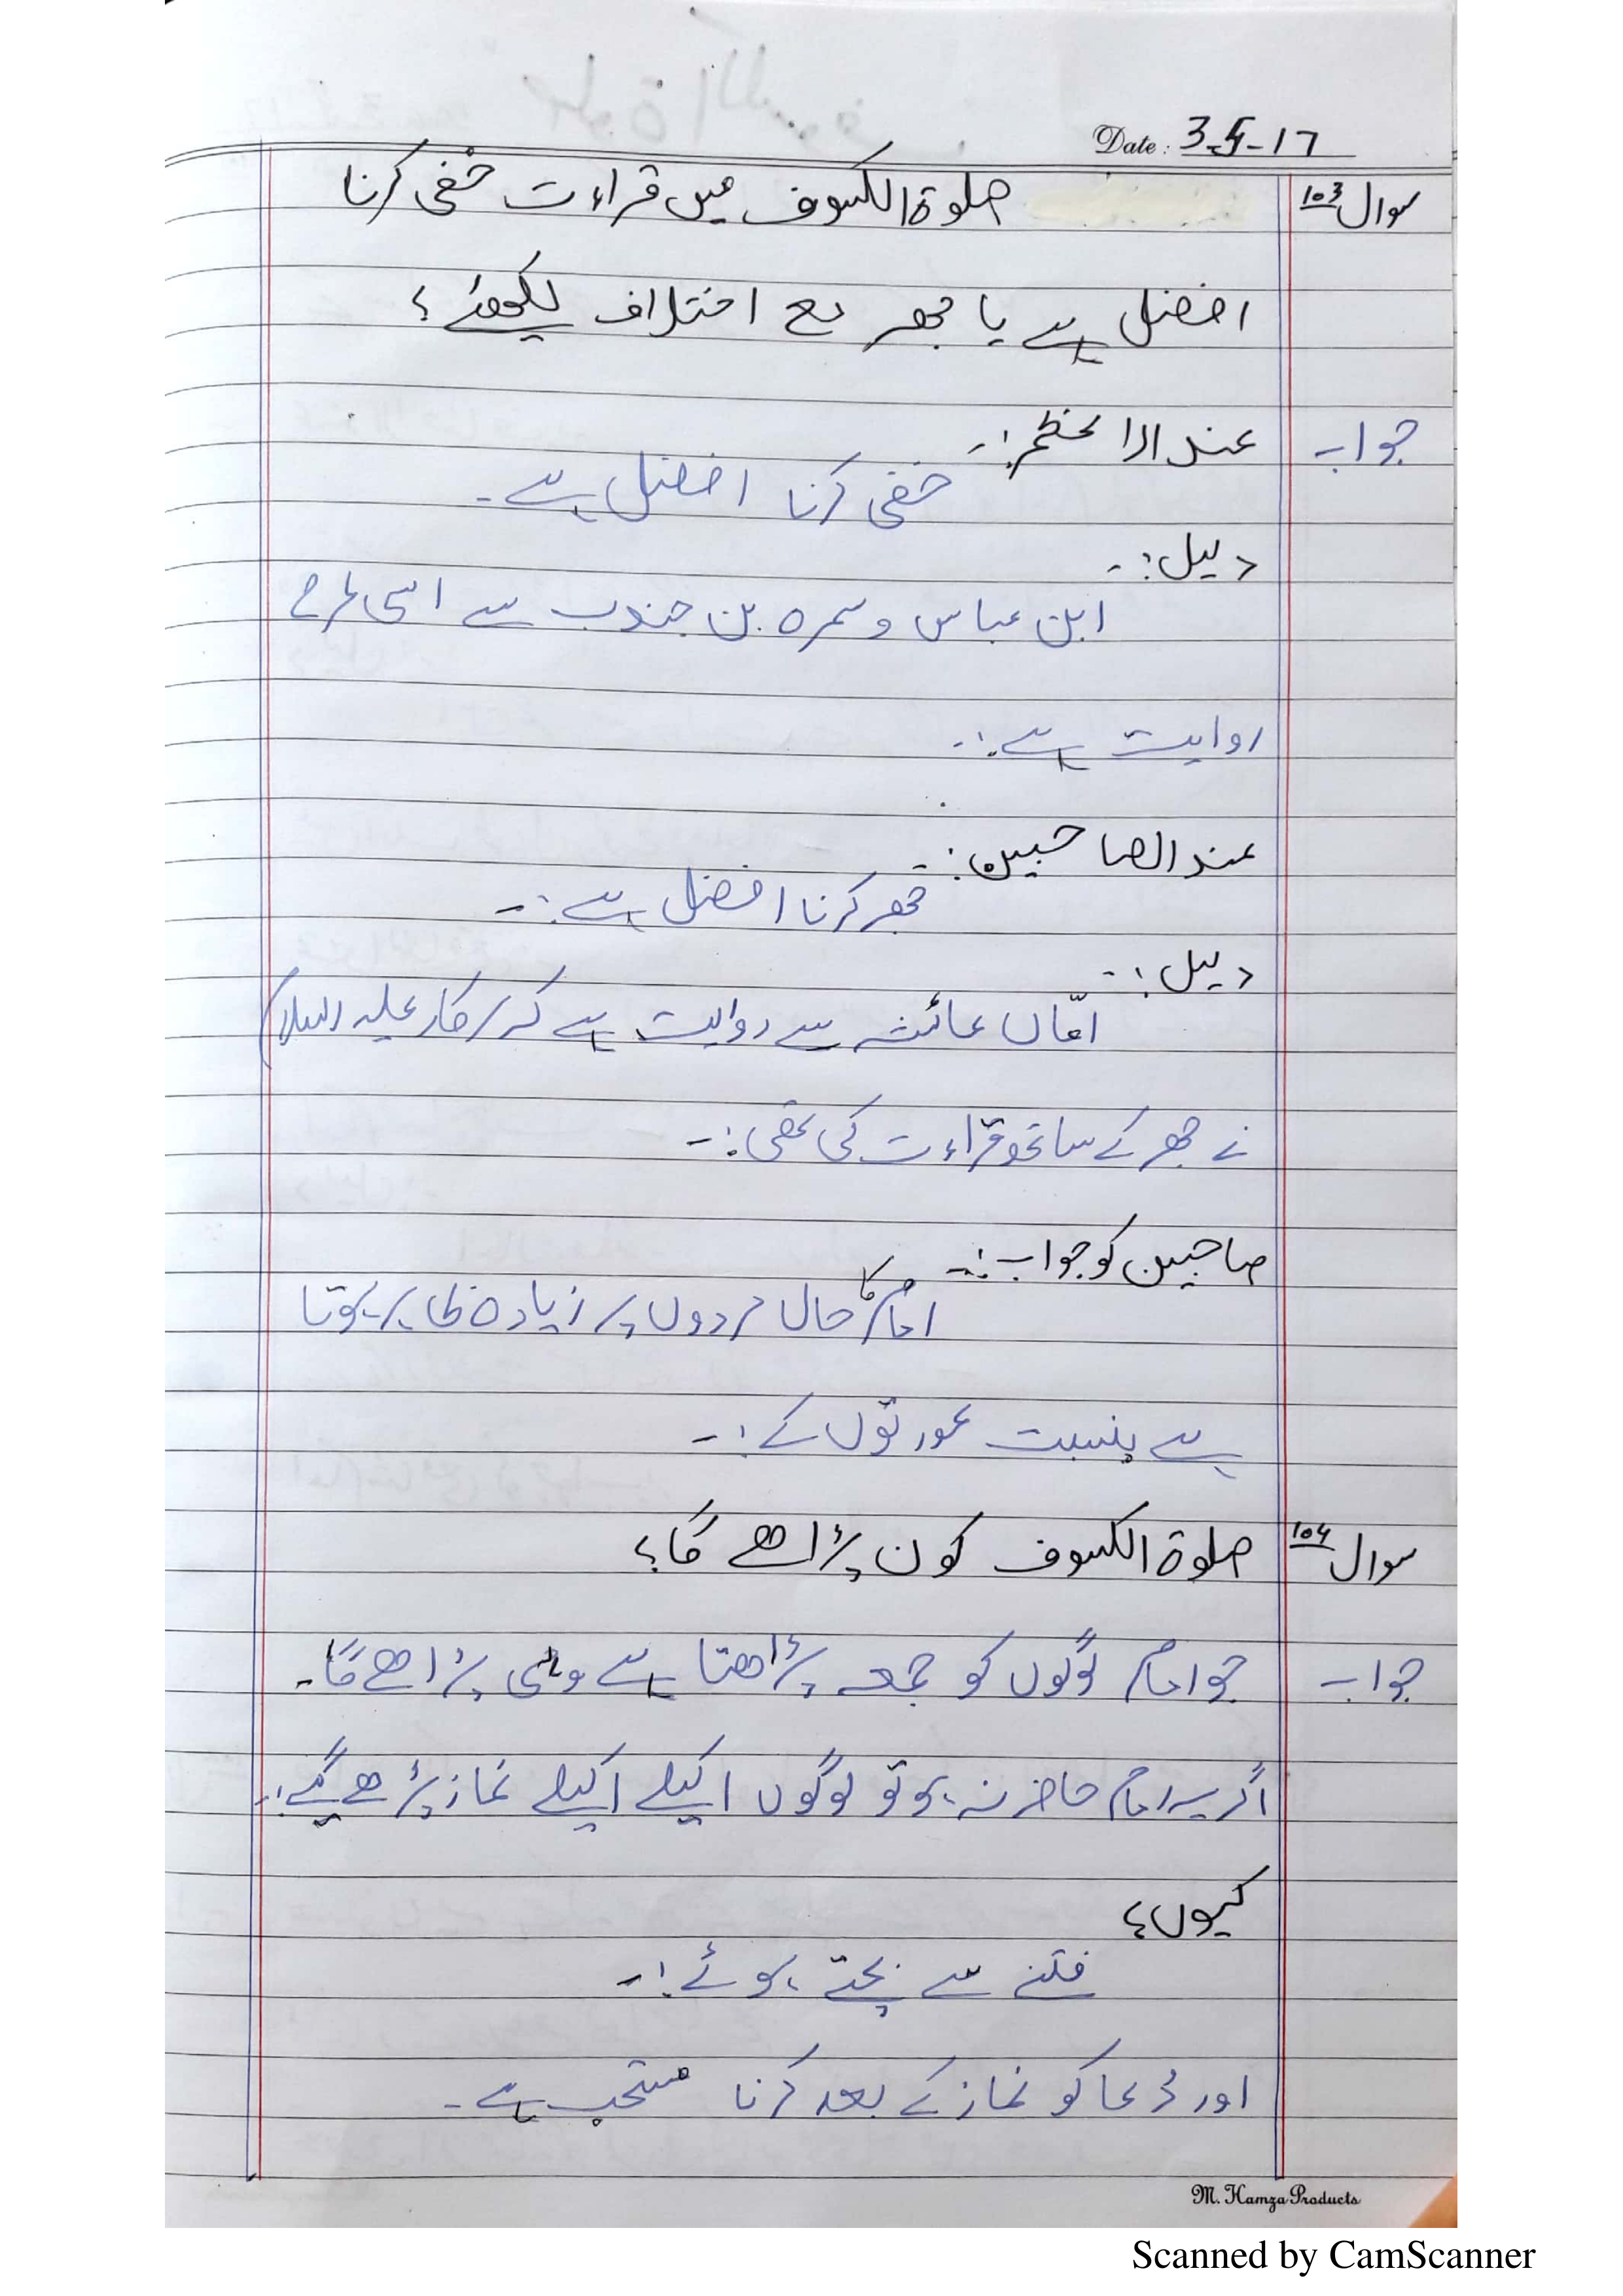 Date: 3-5-17
سوال 103 صلوۃ الکسوف میں قراءت خفی کرنا
افضل ہے یا جھر مع اختلاف لکھئے؟
جواب عند الاعظم:۔
خفی کرنا افضل ہے۔
دلیل:۔
ابن عباس و سمرہ بن جندب سے اسی طرح
روایت ہے:۔
عند الصاحبین:۔
جھر کرنا افضل ہے:۔
دلیل:۔
امّاں عائشہ سے روایت ہے کہ سرکار علیہ السلام
نے جھر کے ساتھ قراءت کی تھی:۔
صاحبین کو جواب:۔
امام کا حال مردوں پر زیادہ ظاہر ہوتا
ہے بنسبت عورتوں کے:۔
سوال 104 صلوۃ الکسوف کون پڑاھے گا؟
جواب جو امام لوگوں کو جمعہ پڑاھتا ہے وہی پڑاھے گا۔
اگر یہ امام حاضر نہ ہو تو لوگوں اکیلے اکیلے نماز پڑھے گیے:۔
کیوں؟
فتنے سے بچتے ہوئے:۔
اور دُعا کو نماز کے بعد کرنا مستحب ہے۔
M. Hamza Products
Scanned by CamScanner